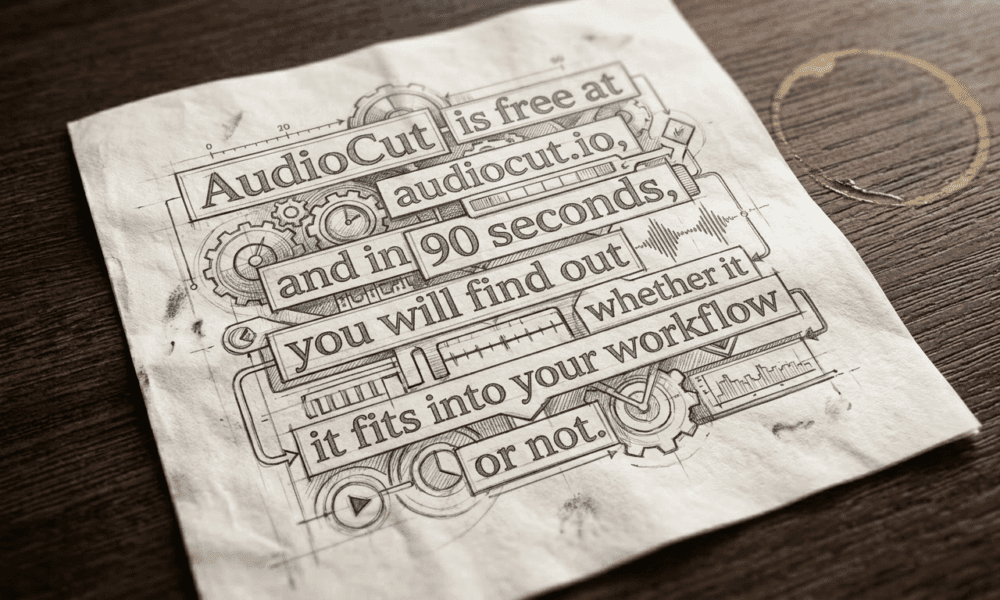 0 20
AudioCut is free at
audiocut.io,
and in 90 seconds,
you will find out
whether it
it fits into your workflow
or not.